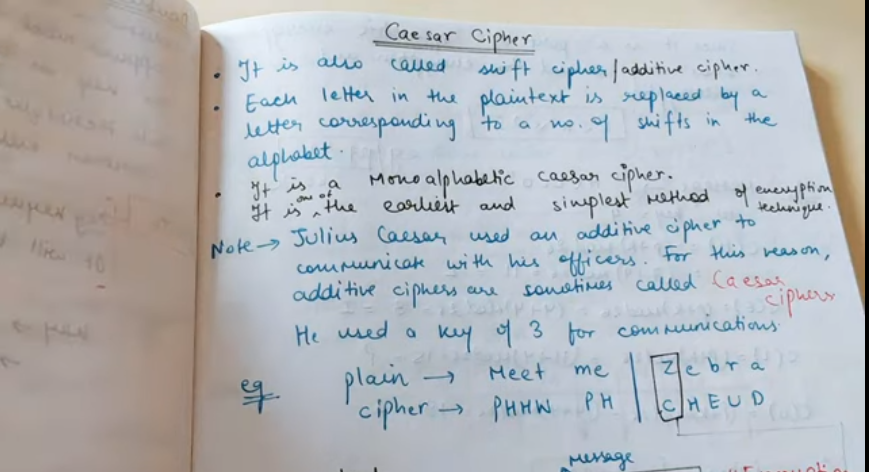 Caesar Cipher
• It is also called shift cipher/additive cipher.
• Each letter in the plaintext is replaced by a
letter corresponding to a no. of shifts in the
alphabet.
• It is a Monoalphabetic Caesar cipher.
It is one of the earliest and simplest method of encryption technique.
Note → Julius Caesar used an additive cipher to
communicate with his officers. For this reason,
additive ciphers are sometimes called Caesar ciphers
He used a key of 3 for communications.
eg plain → Meet me | Zebra
cipher → PHHW PH | CHEUD
message